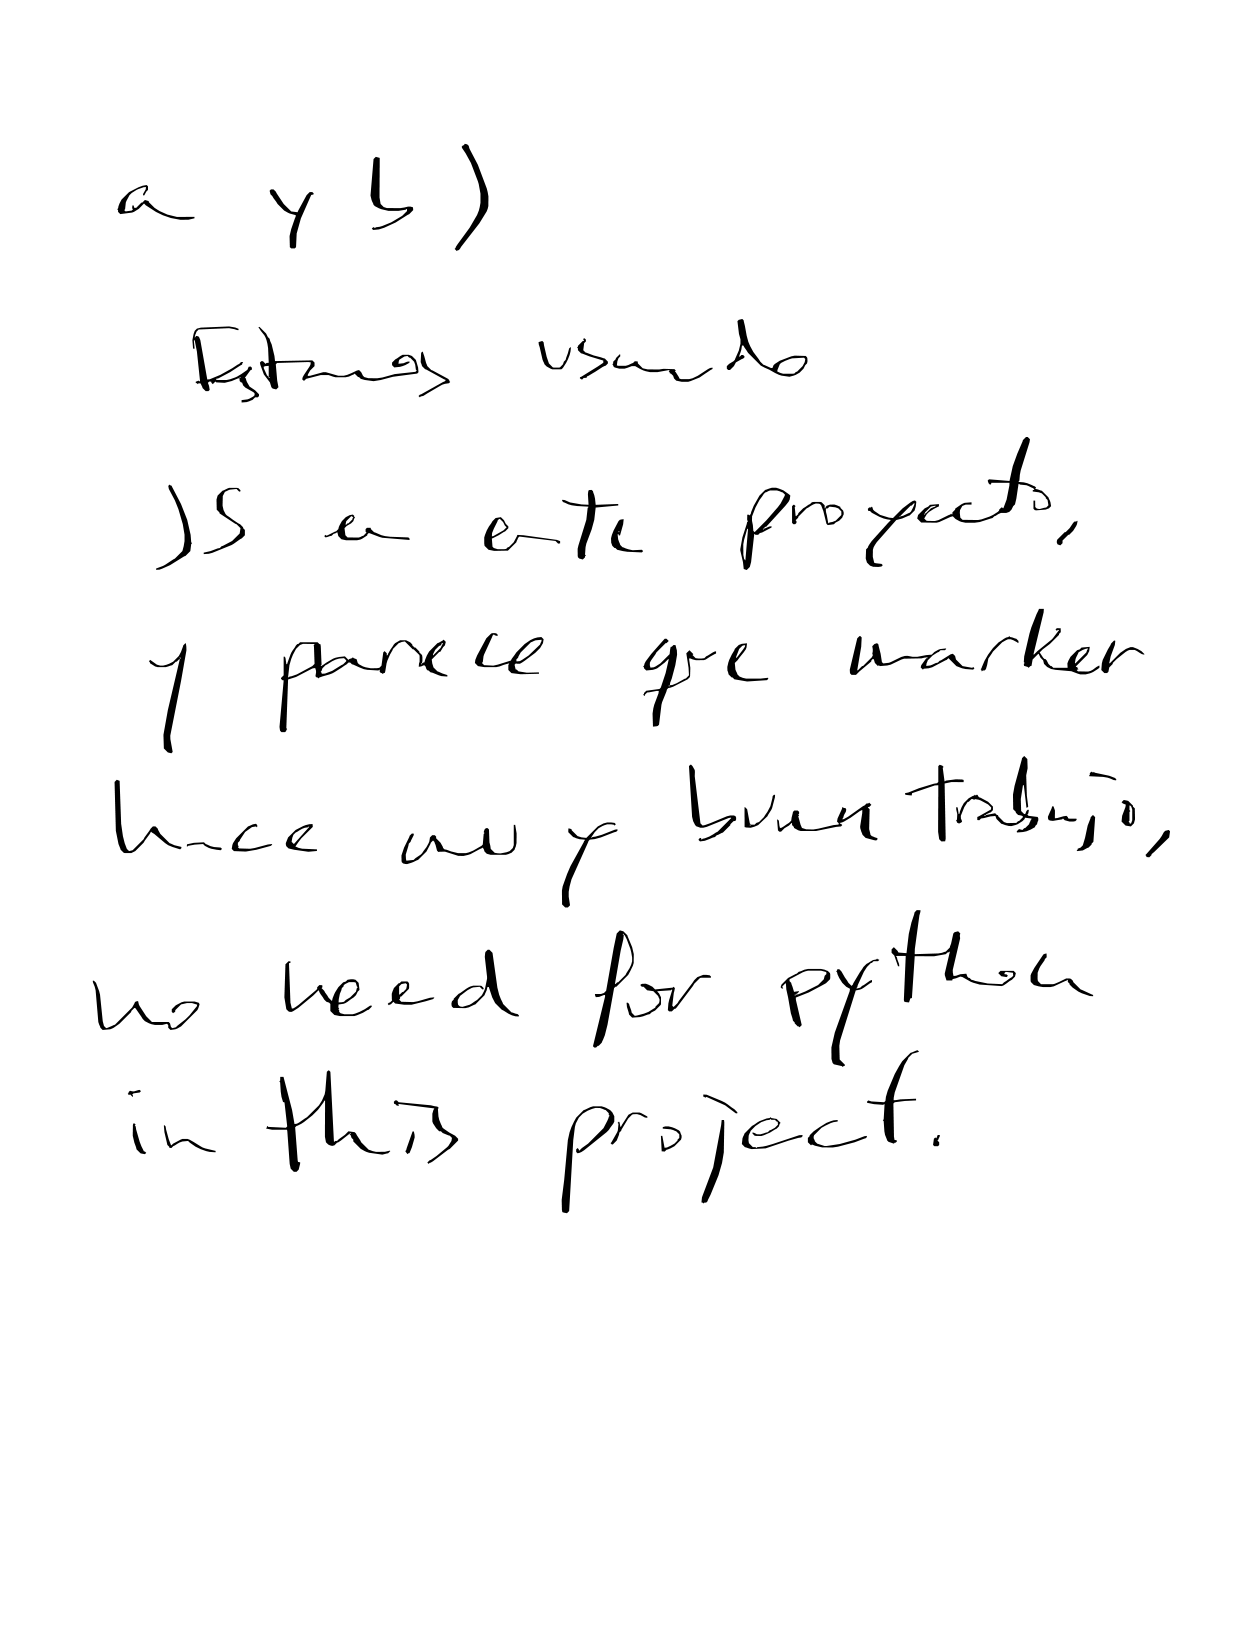 a y b)
Estamos usando
JS en este proyecto,
y parece que marker
hace muy buen trabajo,
no need for python
in this project.